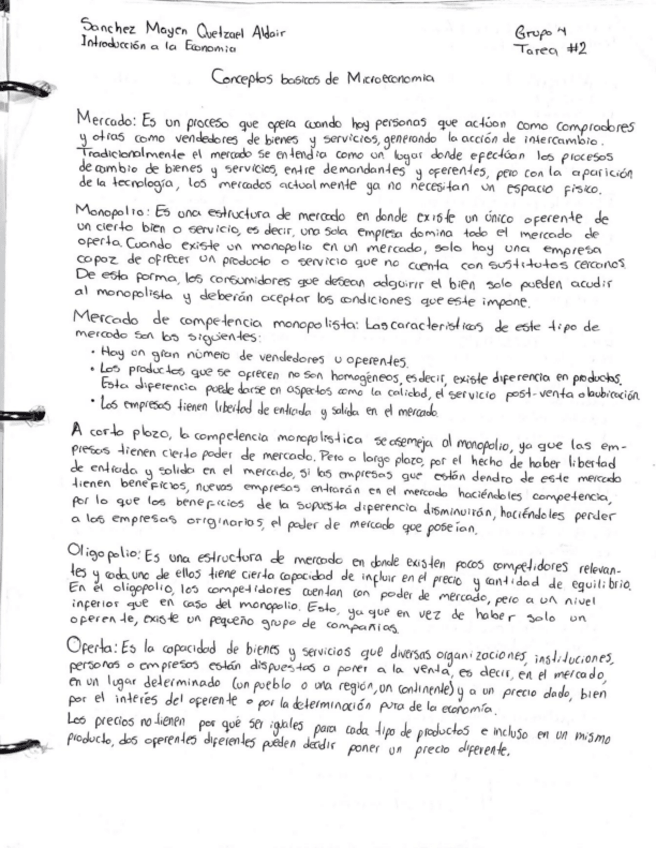 Sanchez Mayen Quetzael Aldair
Grupo 4
Introducción a la Economia
Tarea #2
Conceptos basicos de Microeconomia
Mercado: Es un proceso que opera cuando hay personas que actúan como compradores
y otras como vendedores de bienes y servicios, generando la acción de intercambio.
Tradicionalmente el mercado se entendía como un lugar donde efectúan los procesos
de cambio de bienes y servicios, entre demandantes y oferentes, pero con la aparición
de la tecnología, los mercados actualmente ya no necesitan un espacio físico.
Monopolio: Es una estructura de mercado en donde existe un único oferente de
un cierto bien o servicio, es decir, una sola empresa domina todo el mercado de
oferta. Cuando existe un monopolio en un mercado, solo hay una empresa
capaz de ofrecer un producto o servicio que no cuenta con sustitutos cercanos.
De esta forma, los consumidores que desean adquirir el bien solo pueden acudir
al monopolista y deberán aceptar las condiciones que este impone.
Mercado de competencia monopolista: Las características de este tipo de
mercado son los siguientes:
• Hay un gran número de vendedores u oferentes.
• Los productos que se ofrecen no son homogéneos, es decir, existe diferencia en productos.
Esta diferencia puede darse en aspectos como la calidad, el servicio post-venta o la ubicación.
• Las empresas tienen libertad de entrada y salida en el mercado
A corto plazo, la competencia monopolistica se asemeja al monopolio, ya que las em-
presas tienen cierto poder de mercado. Pero a largo plazo, por el hecho de haber libertad
de entrada y salida en el mercado, si las empresas que están dendro de este mercado
tienen beneficios, nuevas empresas entrarán en el mercado haciéndoles competencia,
por lo que los beneficios de la supuesta diferencia disminuirán, haciéndoles perder
a las empresas originarias, el poder de mercado que poseían.
Oligopolio: Es una estructura de mercado en donde existen pocos competidores relevan-
tes y cada uno de ellos tiene cierta capacidad de influir en el precio y cantidad de equilibrio.
En el oligopolio, los competidores cuentan con poder de mercado, pero a un nivel
inferior que en caso del monopolio. Esto, ya que en vez de haber solo un
oferente, existe un pequeño grupo de compañías.
Oferta: Es la capacidad de bienes y servicios que diversas organizaciones, instituciones,
personas o empresas están dispuestas a poner a la venta, es decir, en el mercado,
en un lugar determinado (un pueblo o una región, un continente) y a un precio dado, bien
por el interés del oferente o por la determinación pura de la economía.
Los precios no tienen por qué ser iguales para cada tipo de productos e incluso en un mismo
producto, dos oferentes diferentes pueden decidir poner un precio diferente.